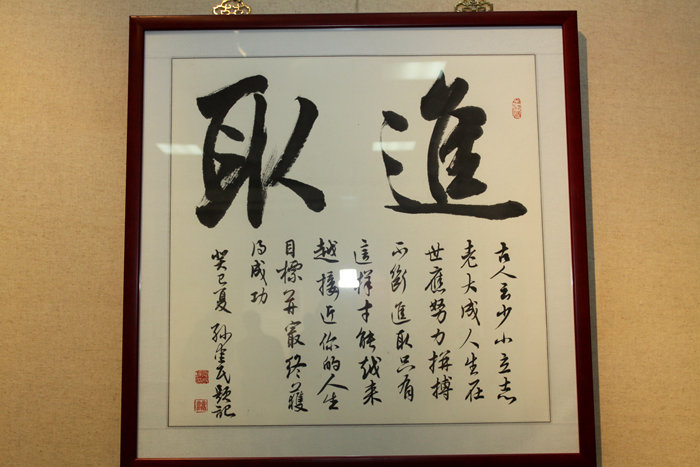 進取
古人云少小立志
老大成人生在
世應努力拼搏
不斷進取只有
這样才能越来
越接近你的人生
目標并最終獲
得成功
癸巳夏 题記